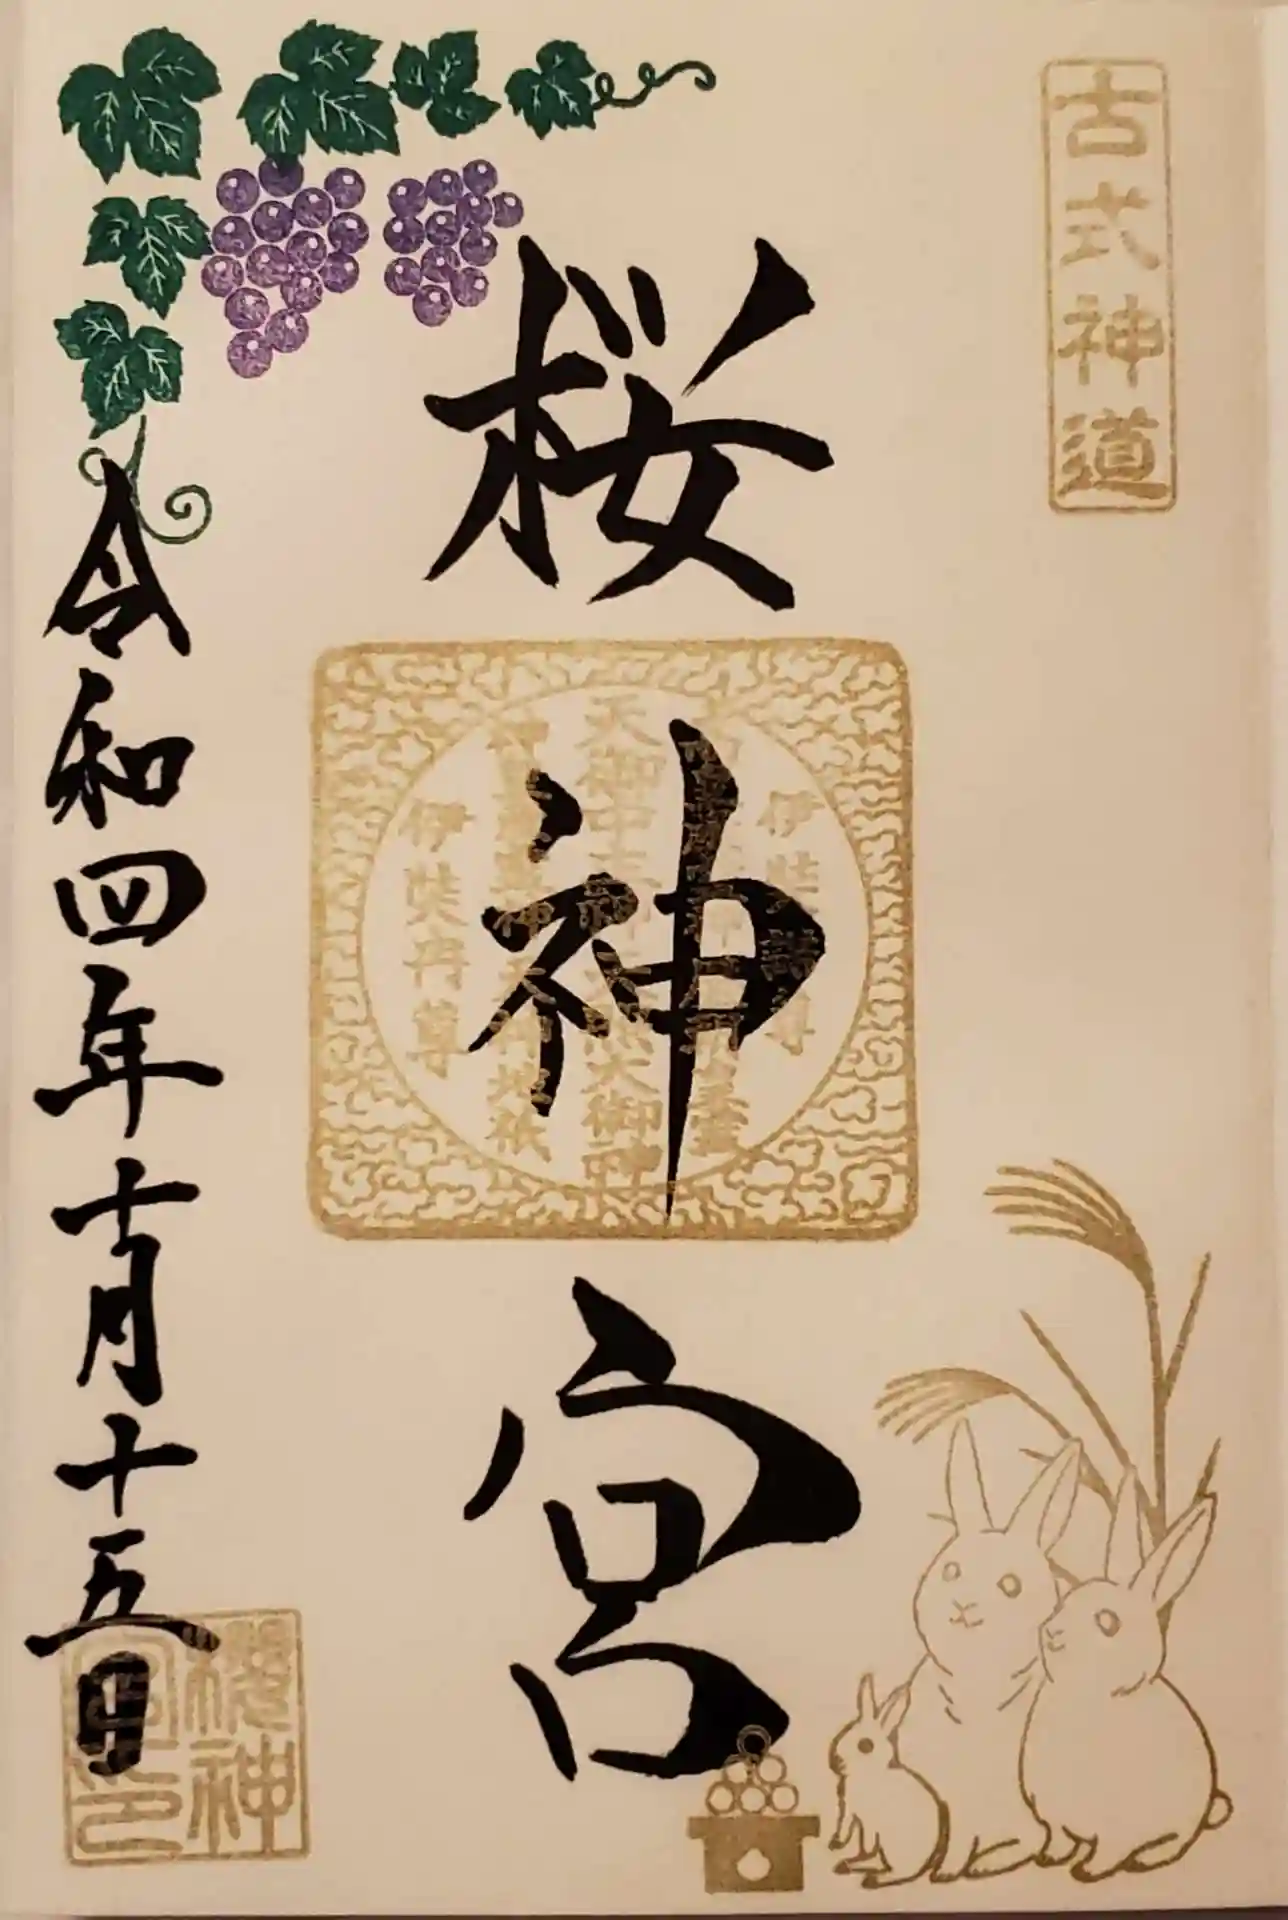 古式神道
桜神宮
伊弉諾尊
天御中主神天照大御神
伊弉冉尊
令和四年十月十五日
櫻神
宮之印